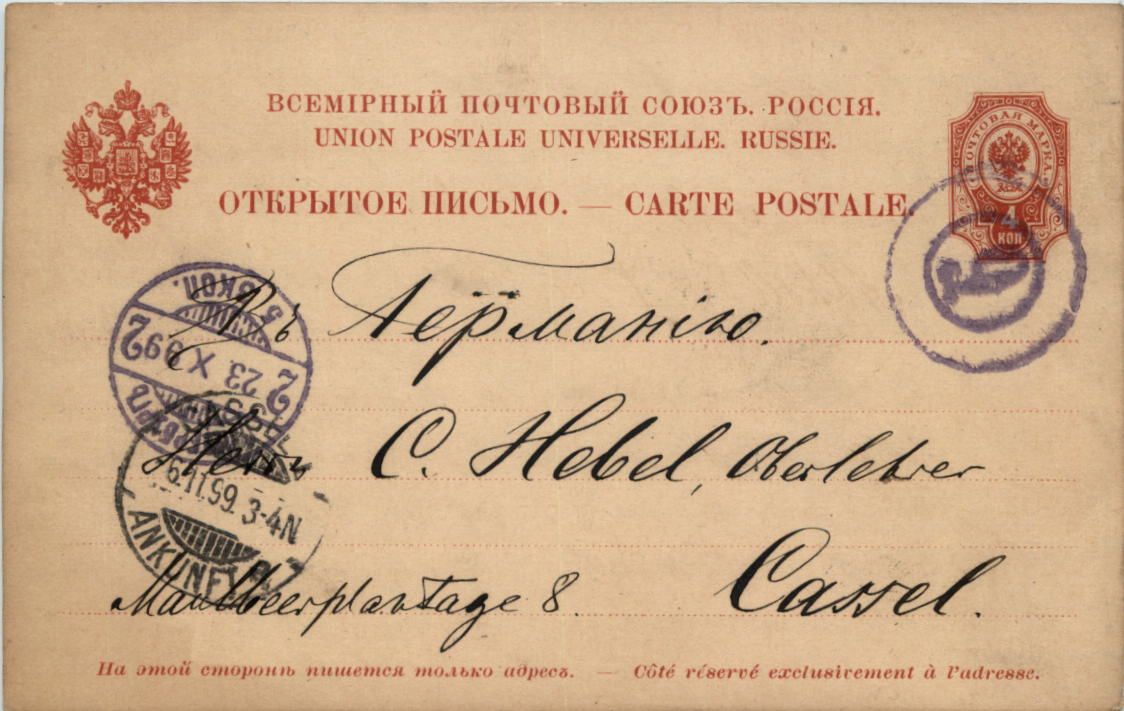 ВСЕМІРНЫЙ ПОЧТОВЫЙ СОЮЗЪ. РОССІЯ.
UNION POSTALE UNIVERSELLE. RUSSIE.
ОТКРЫТОЕ ПИСЬМО. — CARTE POSTALE.
ПОЧТОВАЯ МАРКА
4
КОП
Въ Германію.
2 23 X 99 2
Herrn C. Hebel, Oberlehrer
CASSEL
6.11.99. 3-4N
ANKUNFT
Maulbeerplantage 8. Cassel.
На этой сторонѣ пишется только адресъ. — Côté réservé exclusivement à l'adresse.